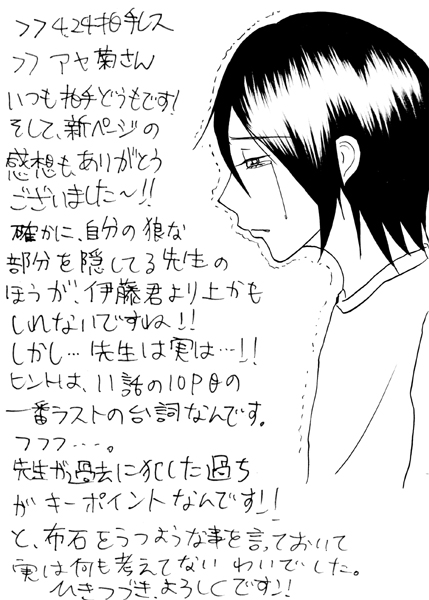 >> 4.24拍手レス
>> アヤ菊さん
いつも拍手どうもです!
そして、新ページの
感想も、ありがとう
ございました〜!!
確かに、自分の狼な
部分を隠してる先生の
ほうが、伊藤君より上かも
しれないですね!!
しかし…先生は実は…!!
ヒントは、11話の10P目の
一番ラストの台詞なんです。
フフフ…。
先生が過去に犯した過ち
がキーポイントなんです!!
と、布石をうつような事を言っておいて
実は何も考えてないわいでした。
ひきつづき、よろしくです!!